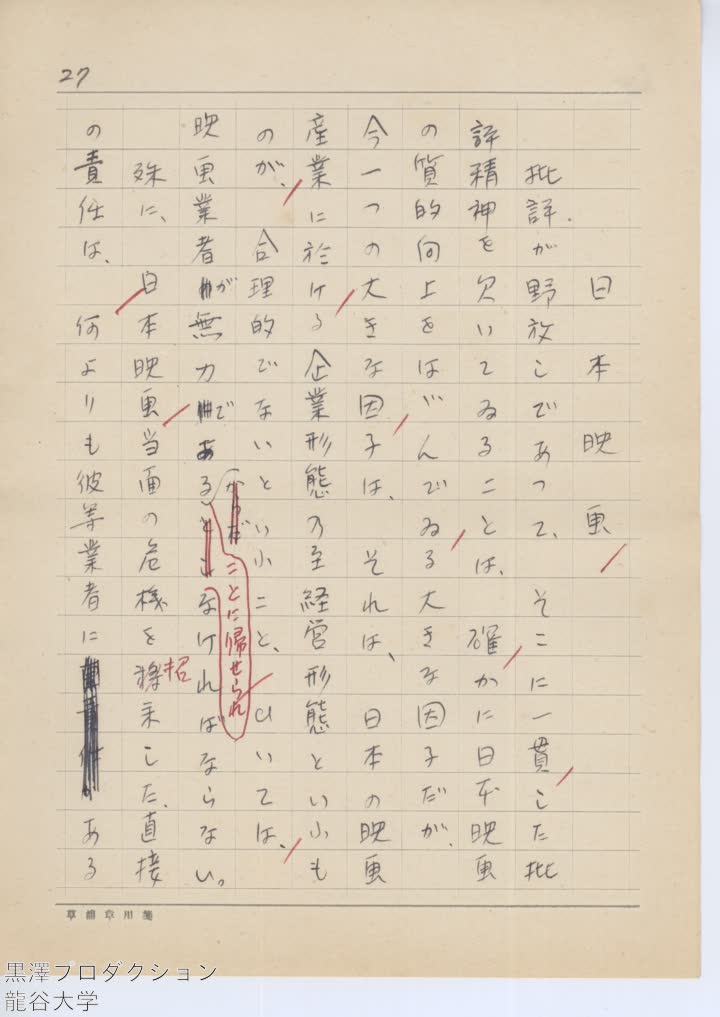 27
日本映画
批評が野放しであつて、そこに一貫した批
評精神を欠いてゐることは、確かに日本映画
の質的向上をはゞんでゐる大きな因子だが、
今一つの大きな因子は、それは、日本の映画
産業に於ける企業形態乃至経営形態といふも
のが、合理的でないといふこと、ひいては、
映画業者が無力である
ことに帰せられ
なければならない。
殊に、日本映画当面の危機を招来した、直接
の責任は、何よりも彼等業者にある
草稿章用箋
黒澤プロダクション
龍谷大学